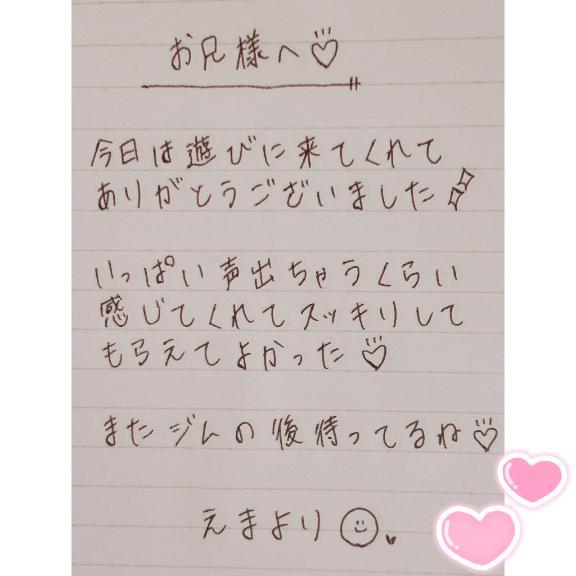 お兄様へ♡
今日は遊びに来てくれて
ありがとうございました
いっぱい声出ちゃうくらい
感じてくれてスッキリして
もらえてよかった♡
またジムの後待ってるね♡
えまより